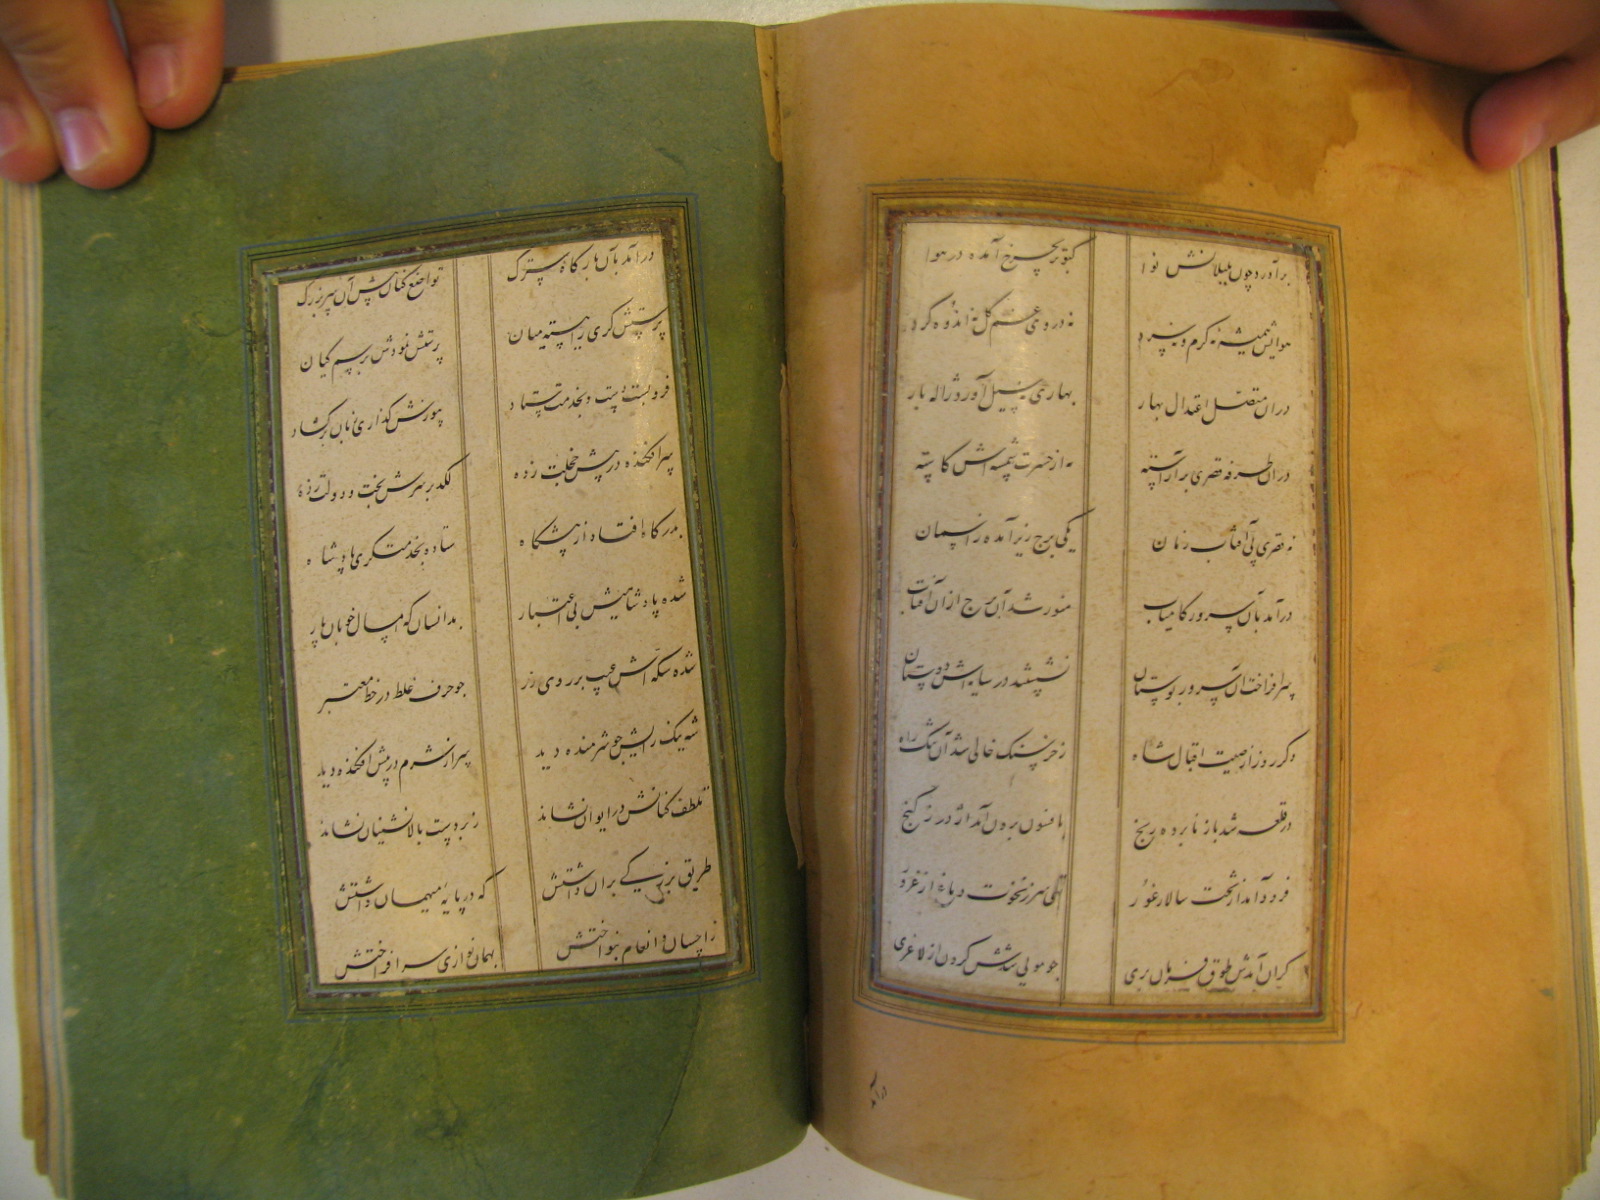 برآورد چون بلبلانش نوا
کبوتر بچرخ آمده در هوا
هوایش همیشه نه گرم و نه سرد
نه در وی غم گل نه اندوه گرد
در آن متصل اعتدال بهار
بهاری نه سیل آور و ژاله بار
در آن طرفه قصری برآراسته
نه از حسرت شمسه اش کاسته
نه قصری پی آفتاب زمان
یکی برج زیر آمده ز آسمان
درآمد بآن سرور کامیاب
منور شد آن برج از آن آفتاب
سرافراخت آن سرور بوستان
نشستند در سایه اش دوستان
دگر روز از صیت اقبال شاه
ز خرچنگ خالی شد آن تنگ راه
در قلعه شد باز نابرده رنج
بافسون برون آمد اژدر ز گنج
فرود آمد از تخت سالار غور
تهی سر ز نخوت دماغ از غرور
گران آمدش طوق فرمان بری
چو مویی شدش گردن از لاغری
درآمد
درآمد بآن بارگاه سترک
تواضع کنان پیش آن سرو بزرگ
پرستش گری را ببسته میان
پرستش نمودش برسم کیان
فرو بست دست و بخدمت ستاد
بپوزش گذاری زبان برگشاد
سر افکنده در پیش خجلت زده
لگد بر سرش بخت و دولت زده
بدرگاه افتاده از پیشگاه
ستاده بخدمتگری پادشاه
شده پادشاهیش بی اعتبار
بدانسان که امسال خوبان پار
شده سکه اش عیب بر روی زر
چو حرف غلط در خط معتبر
شه نیک رایش چو شرمنده دید
سر از شرم در پیش افکنده دید
تلطف کنانش در ایوان نشاند
زبردست بالانشینان نشاند
طریق بزرگی بران داشتش
که در پایه میهمان داشتش
ز احسان و انعام بنواختش
بمهمان نوازی سر افراختش